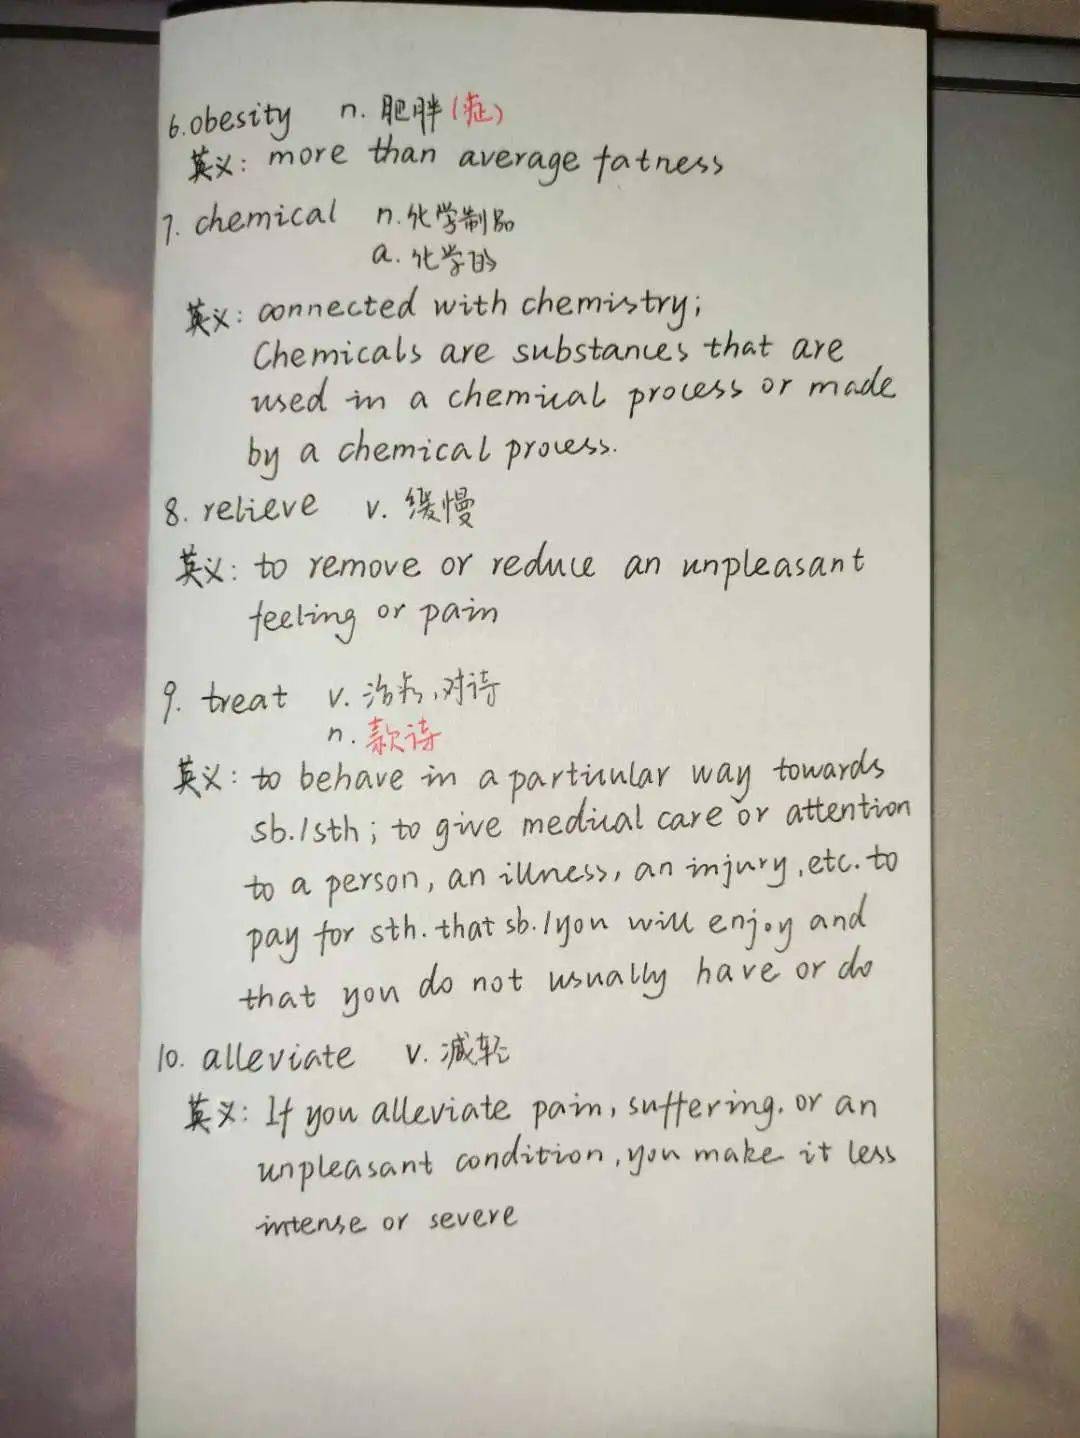 6.obesity n. 肥胖(症)
英义: more than average fatness
7. chemical n.化学制品
a. 化学的
英义: connected with chemistry;
Chemicals are substances that are
used in a chemical process or made
by a chemical process.
8. relieve v. 缓慢
英义: to remove or reduce an unpleasant
feeling or pain
9. treat v. 治疗,对待
n. 款待
英义: to behave in a particular way towards
sb./sth; to give medical care or attention
to a person, an illness, an injury, etc. to
pay for sth. that sb./you will enjoy and
that you do not usually have or do
10. alleviate v. 减轻
英义: If you alleviate pain, suffering. or an
unpleasant condition, you make it less
intense or severe